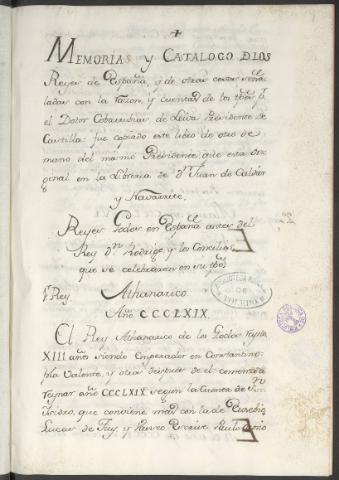 MEMORIAS Y CATALOGO DLOS
Reyes de España, y de otras cosas seña
ladas con la raçon, y cuenta de los tpos. q̃
el Dotor Cobarrubias de Leiva Presidente de
Castilla: fue copiado este libro de otro de
mano del mismo Presidente que esta ori
ginal en la Libreria de Dn. Juan de Calder
y Navarrete.
Reyes Godos en España antes del
Rey Dn. Rodrigo, y los Concilios
que se celebraron en su tpo.
1º Rey. Athanarico
Año CCCLXIX
El Rey Athanarico de los Godos Reyno
XIII años siendo Emperador en Constantino:
pla Valente, y otro despues de el comenzo a
reynar año CCCLXIX segun la Cuenta de Sn.
Isidro, que conviene mas con la de Eusebio,
Lucas de Tuy, y
TOLEDO